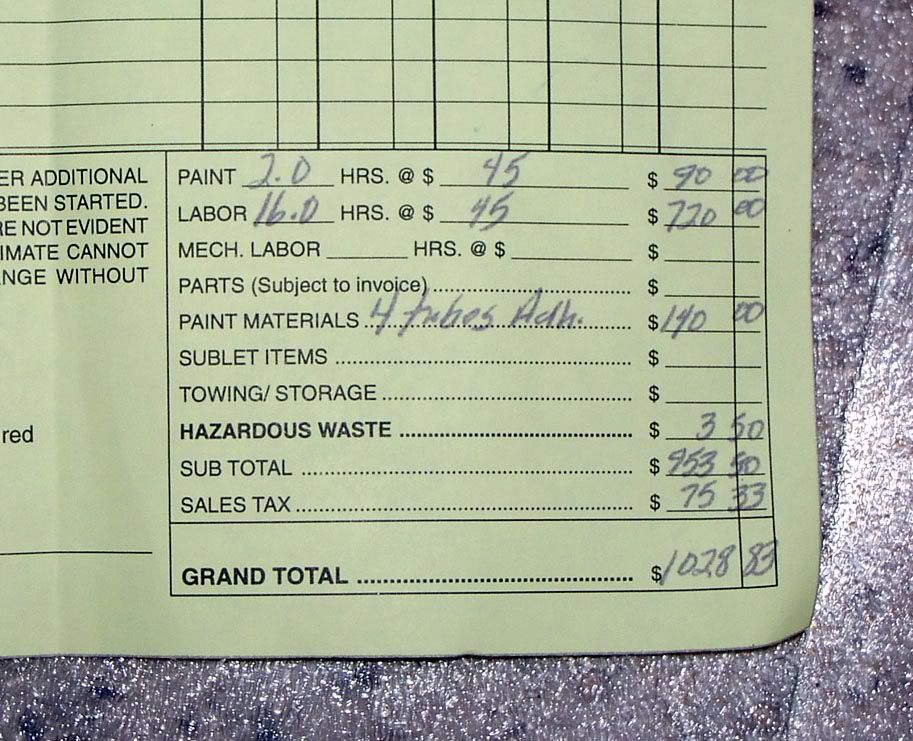 ER ADDITIONAL
BEEN STARTED.
RE NOT EVIDENT
IMATE CANNOT
NGE WITHOUT
red
PAINT 2.0 HRS. @ $ 45 $ 90 00
LABOR 16.0 HRS. @ $ 45 $ 720 00
MECH. LABOR ______ HRS. @ $ ______ $
PARTS (Subject to invoice) .......... $
PAINT MATERIALS 4 tubes Adh. ..... $ 140 00
SUBLET ITEMS .......... $
TOWING/ STORAGE .......... $
HAZARDOUS WASTE .......... $ 3 50
SUB TOTAL .......... $ 953 50
SALES TAX .......... $ 75 33
GRAND TOTAL .......... $ 1028 83